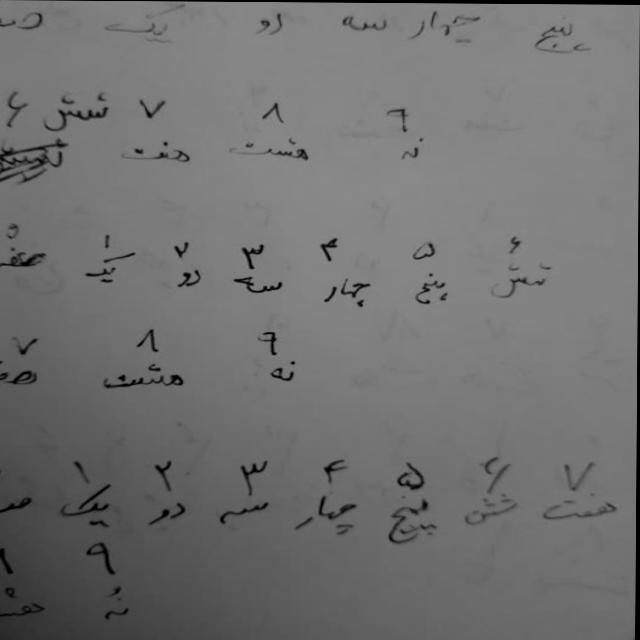 پنج چهار سه دو یک
۹ ۸ ۷ شش ۶
نه هشت هفت
۶ ۵ ۴ ۳ ۲ ۱
شش پنج چهار سه دو یک
۹ ۸ ۷
نه هشت
۷ ۶ ۵ ۴ ۳ ۲ ۱
هفت شش پنج چهار سه دو یک
۹ ۸
نه